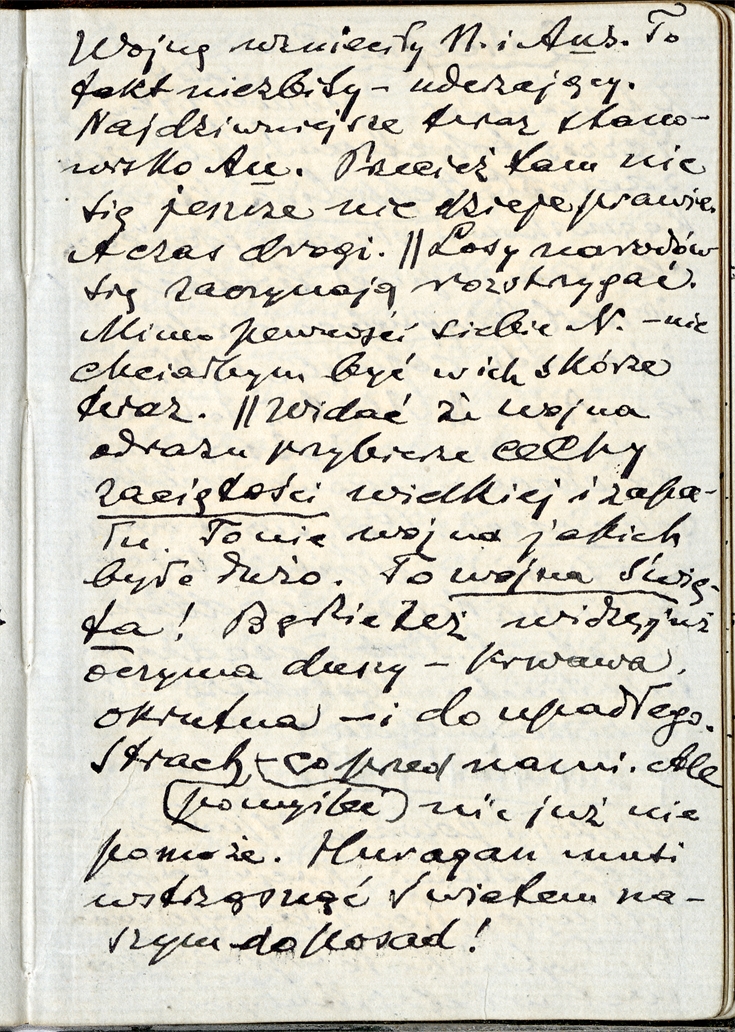 Wojnę wznieciły N. i Aus. To
fakt niezbity – uderzający.
Najdziwniejsze teraz stano-
wisko An. Przecież tam nic
się jeszcze nie dzieje prawie.
A czas drogi. || Losy narodów
się zaczynają rozstrzygać.
Mimo pewności siebie N. – nie
chciałbym być w ich skórze
teraz. || Widać że wojna
odrazu przybierze cechy
zaciętości wielkiej i zapa-
łu. To nie wojna jakich
było dużo. To wojna świę-
ta! Będzie też widzę już
oczyma duszy – krwawa,
okrutna – i do upadłego.
Strach, co przed nami. Ale
(pomyśleć) nic już nie
pomoże. Huragan musi
wstrząsnąć światem na-
szym do posad!